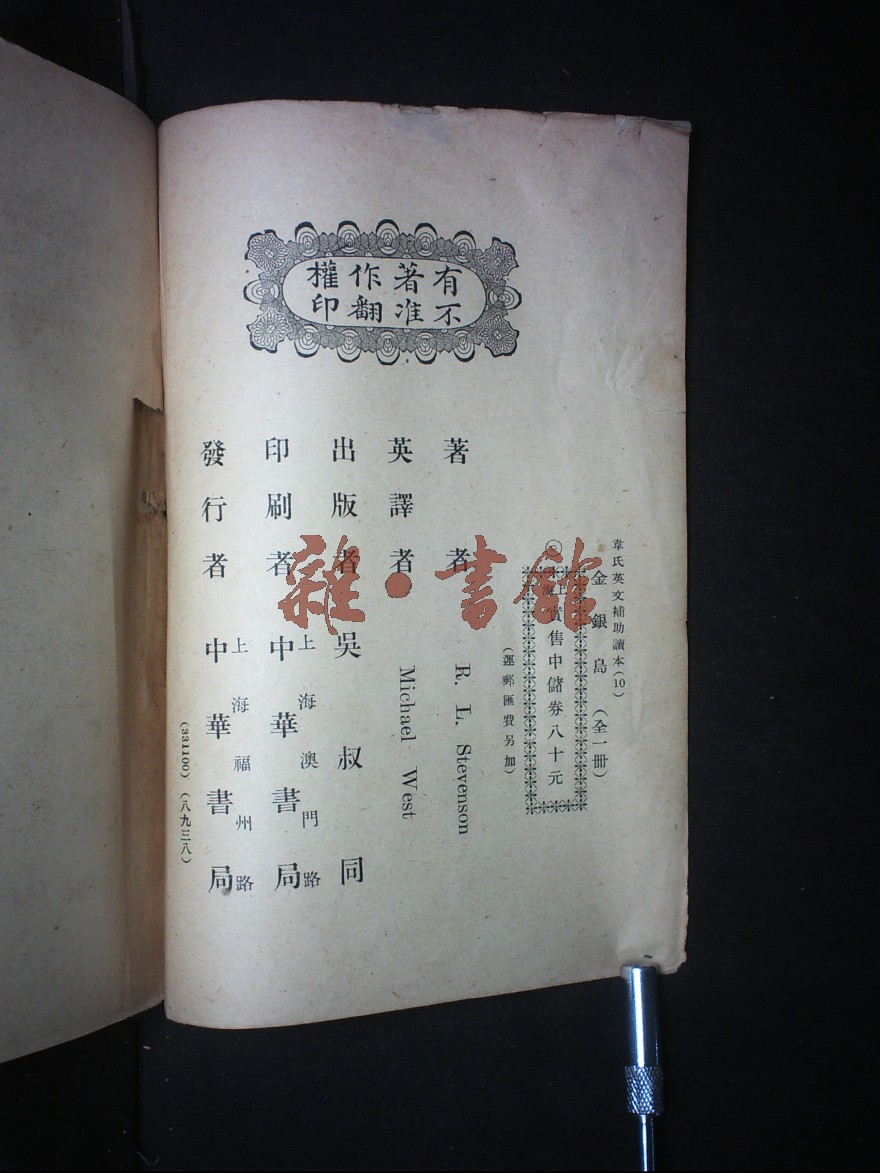 有著作權
不准翻印
韋氏英文補助讀本(10)
金銀島(全一冊)
實售中儲券八十元
(運郵匯費另加)
著者 R. L. Stevenson
英譯者 Michael West
出版者 吳叔同
上海澳門路
印刷者 中華書局
上海福州路
發行者 中華書局
(331100)(八九三八)
雜·書館